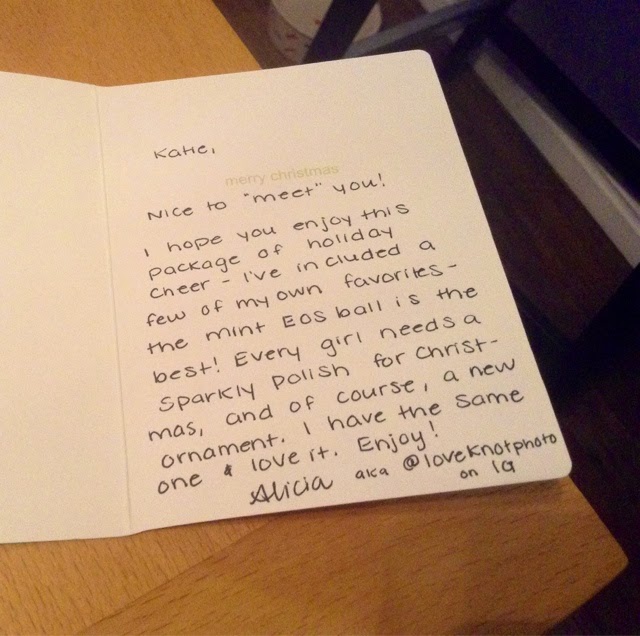 Katie,
merry christmas
Nice to "meet" you!
I hope you enjoy this
package of holiday
cheer - I've included a
few of my own favorites -
the mint EOS ball is the
best! Every girl needs a
sparkly polish for Christ-
mas, and of course, a new
ornament. I have the same
one & love it. Enjoy!
Alicia aka @loveknotphoto
on IG